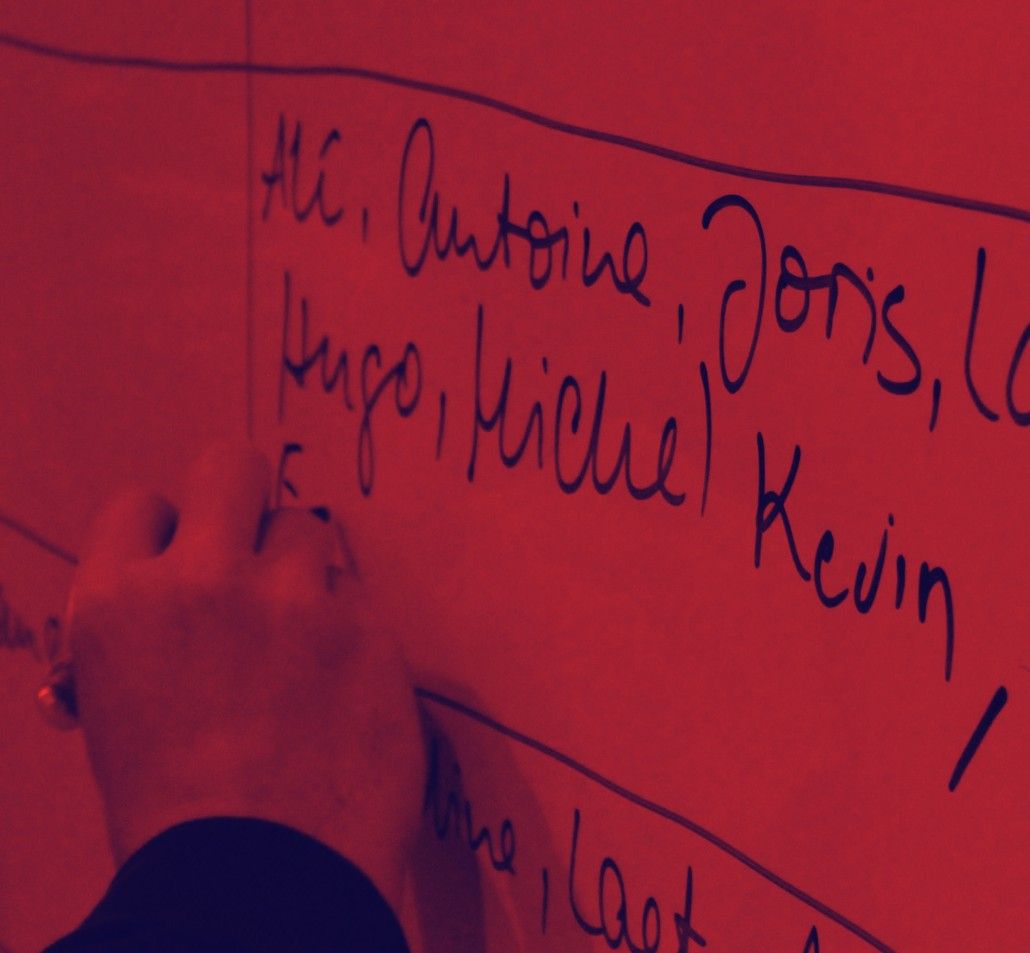 Ali, Antoine, Joris, Lo
Hugo, Michel, Kevin,
F
ine, Laet